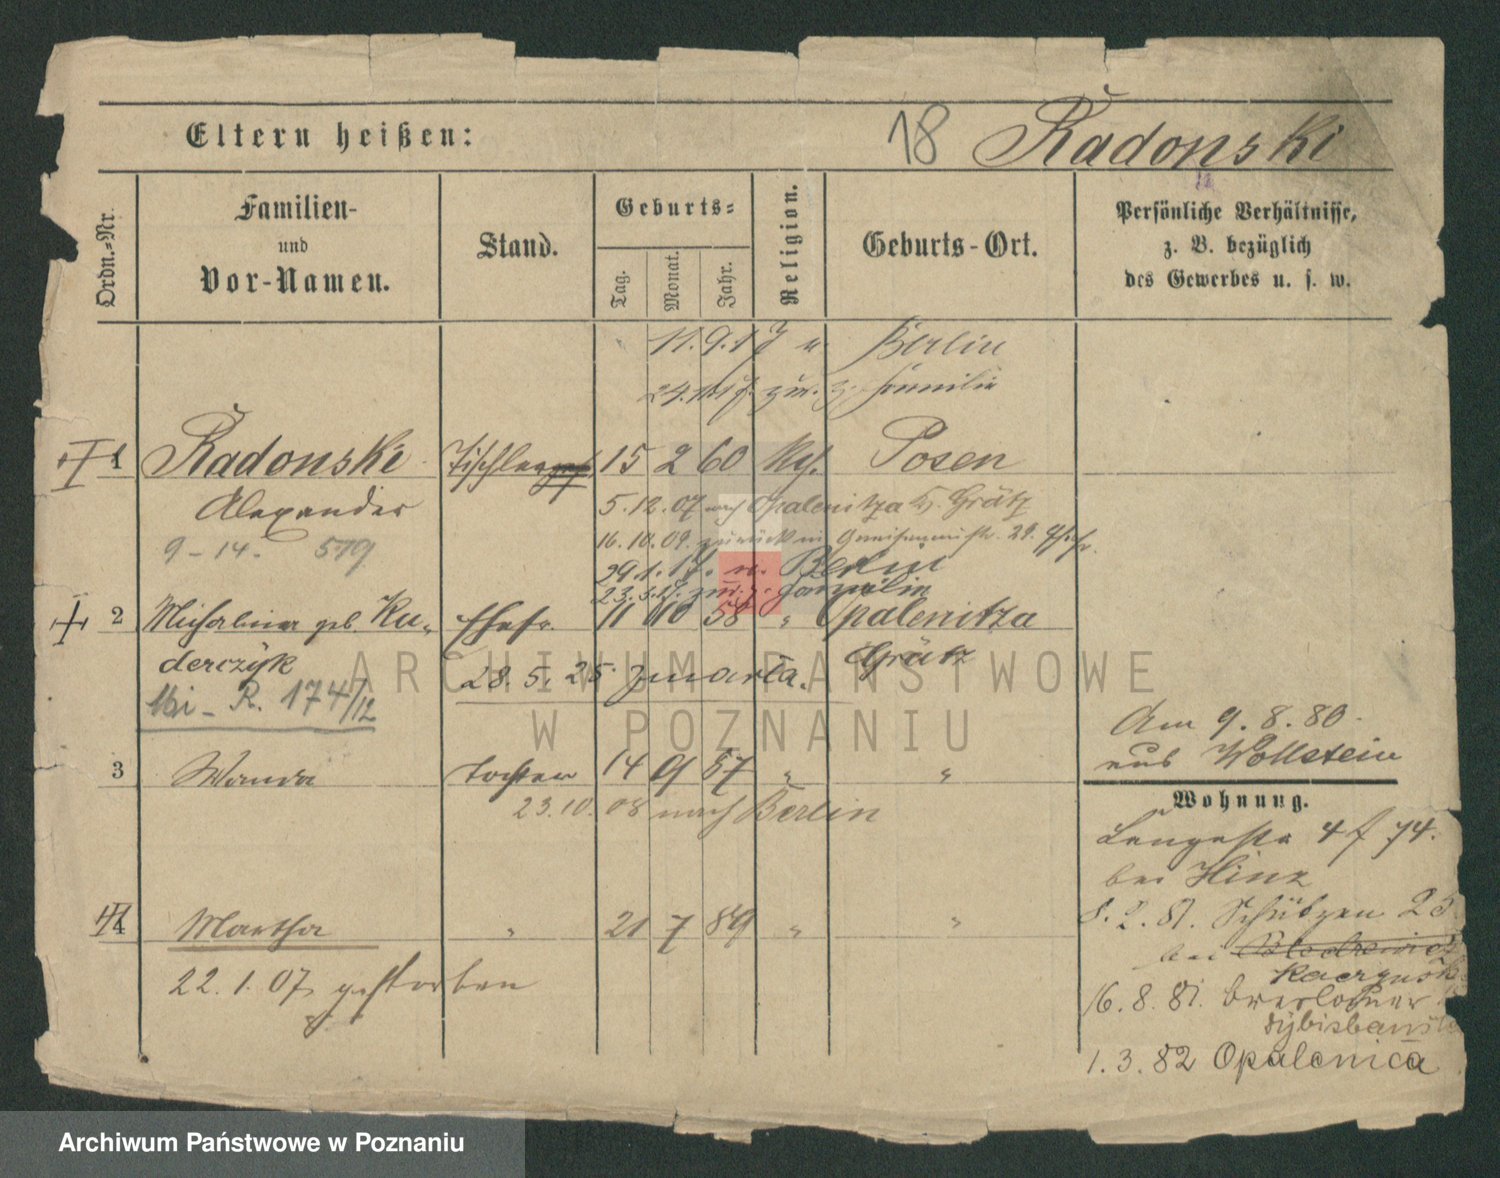 Eltern heißen:
18 Radonski
Ordn.-Nr.
Familien-
und
Vor-Namen.
Stand.
Geburts-
Tag.
Monat.
Jahr.
Religion.
Geburts-Ort.
Persönliche Verhältnisse,
z. B. bezüglich
des Gewerbes u. s. w.
11.9.17 n. Berlin
24. zur. z. Familie
1 Radonski Tischler 15 2 60 Posen
Alexander
5.12.07 nach Opalenitza Kr. Grätz
9-14. 579
16.10.09. zurück 29
29.1.17. n. Berlin
23.3.17. zur. z. Familie
2 Michalina geb. Ku- Ehefr. 11 10 58 " Opalenitza
derczyk Grätz
28.5.25 zmarła.
Mi - R. 174/12
Am 9.8.80.
aus Wollstein
3 Wanda Tochter 14 9 87 " "
23.10.08 nach Berlin
Wohnung.
Langestr 4 74.
bei Hinz
8.2.81. Schützen 25
bei
Kaczynsk
16.8.81. Breslauer
1.3.82 Opalenica
4 Martha " 21 7 89 " "
22.1.07 gestorben
ARCHIWUM PAŃSTWOWE
W POZNANIU
Archiwum Państwowe w Poznaniu